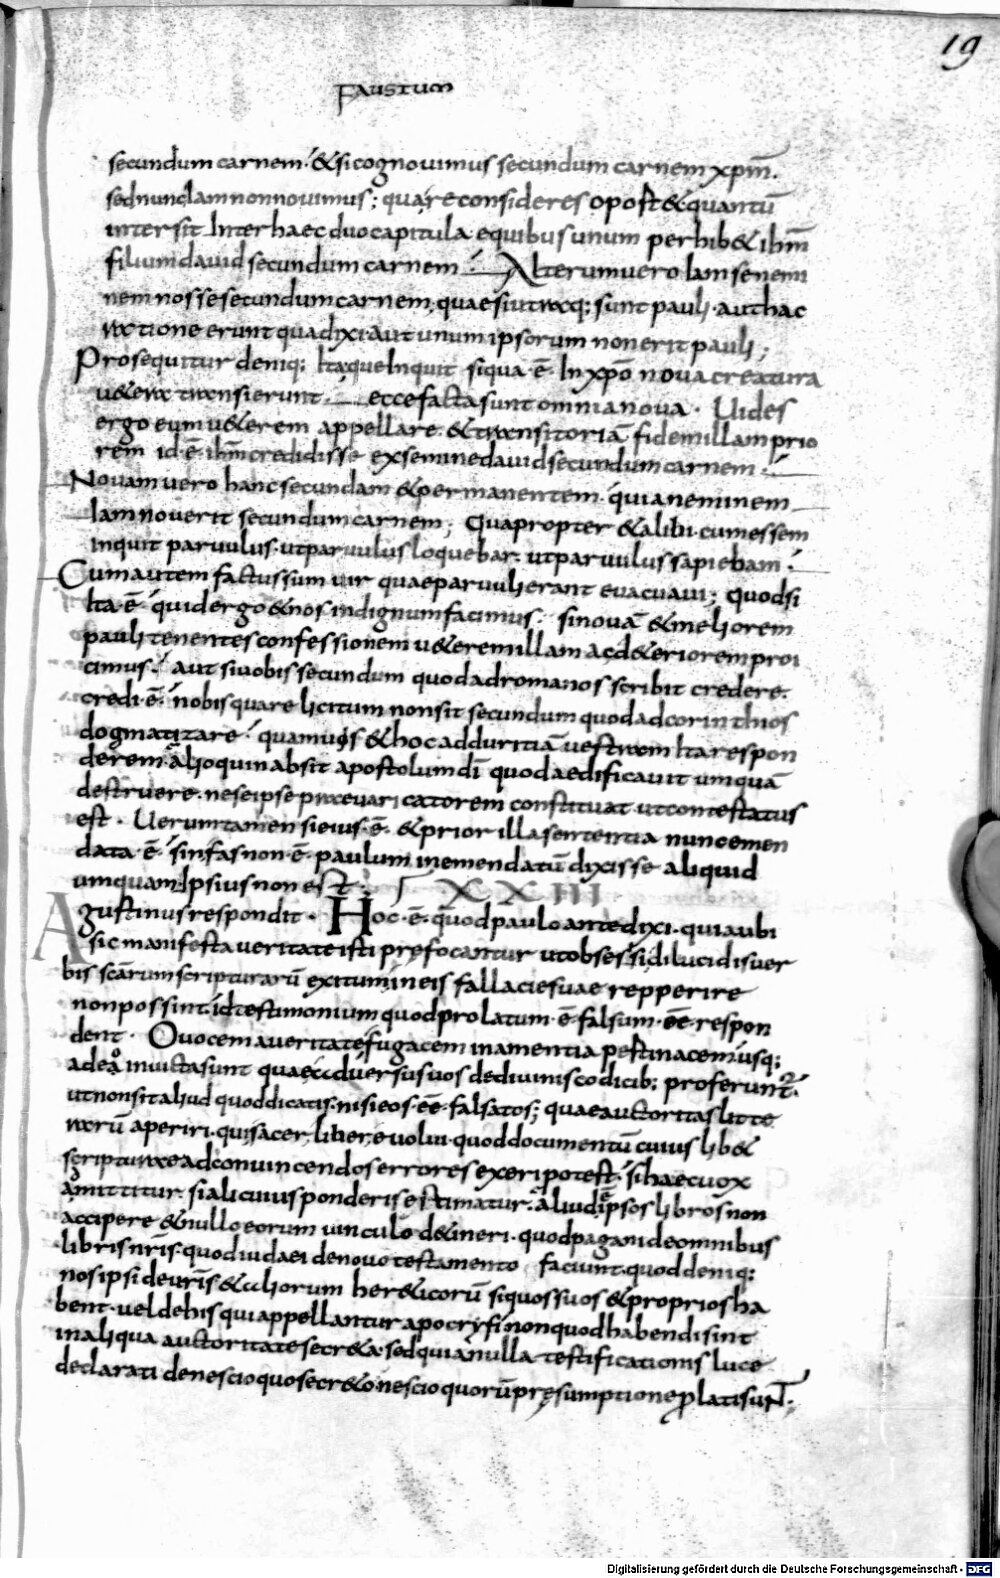 19
FAUSTUM
secundum carnem. &sicognouimus secundum carnem xpm̄.
sednunc Iamnonnouimus; quare consideres opost&quantū
intersit Inter haec duo capitula equibus unum perhib& ihm̄
filium dauid secundum carnem Alterumuero Iamsenemi
nem nosse secundum carnem. quaesiutraq; sunt pauli. aut hac
ratione erunt quadixi. aut unum ipsorum nonerit pauli;
Prosequitur deniq; Itaque Inquit siqua ē In xpō noua creatura
u&era transierunt. ecce facta sunt omnia noua. Uides
ergo eum u&erem appellare. &transitoriā fidem illam prio
rem id ē ihm̄ credidisse exsemine dauid secundum carnem.
Nouam uero hanc secundam &permanentem. quia neminem
Iam nouerit secundum carnem; Quapropter &alibi. cum essem
inquit paruulus. ut paruulus loquebar. ut paruulus sapiebam.
Cum autem factus sum uir quae paruuli erant euacuaui; Quodsi
Ita ē quid ergo &nos indignum facimus. si nouā &meliorem
pauli tenentes confessionem u&eremillam ac d&eriorem proi
cimus. aut si uobis secundum quod ad romanos scribit credere.
credi ē nobis quare licitum non sit secundum quod ad corinthios
dogmatizare. quamuis &hoc ad duritiā uestram Ita respon
derem. alioquin absit apostolum dī quod aedificauit umquā
destruere. ne se ipse praeuaricatorem constituat ut contestatus
est. Uerumtamen si eius ē &prior illa sententia nunc emen
data ē sin fas non ē paulum inemendatū dixisse aliquid
umquam. Ipsius non est. XXIII
Agustinus respondit. Hoc ē quod paulo ante dixi. quia ubi
sic manifesta ueritate isti prefocantur ut obsessi dilucidis uer
bis scārum scripturarū exitum in eis fallaciesuae repperire
non possint. id testimonium quod prolatum ē falsum eē respon
dent. O uocem a ueritate fugacem in amentia pestinacem usq;
adeo inuicta sunt quae aduersus uos de diuinis codicib; proferunt.
ut non sit aliud quod dicatis. nisi eos eē falsatos; quae auctoritas litte
rarū aperiri. quis acer. liber. euolui. quod documentū cuius lib&
scripturae ad conuincendos errores exeri potest. si haec uox
amittitur. si alicuius ponderis estimatur. aliud ipsos libros non
accipere &nullo eorum uinculo d&ineri. quod pagani de omnibus
libris nr̄is. quod iudaei de nouo testamento faciunt. quod deniq;
nos ipsi de uris &aliorum her&icorū siquos suos &proprios ha
bent. uel de his qui appellantur apocryfi non quod habendi sint
in aliqua auctoritate secr&a. sed quia nulla testificationis luce
declarati de nescio quo secr&o nescio quorū presumptione platisunt;
Digitalisierung gefördert durch die Deutsche Forschungsgemeinschaft - DFG